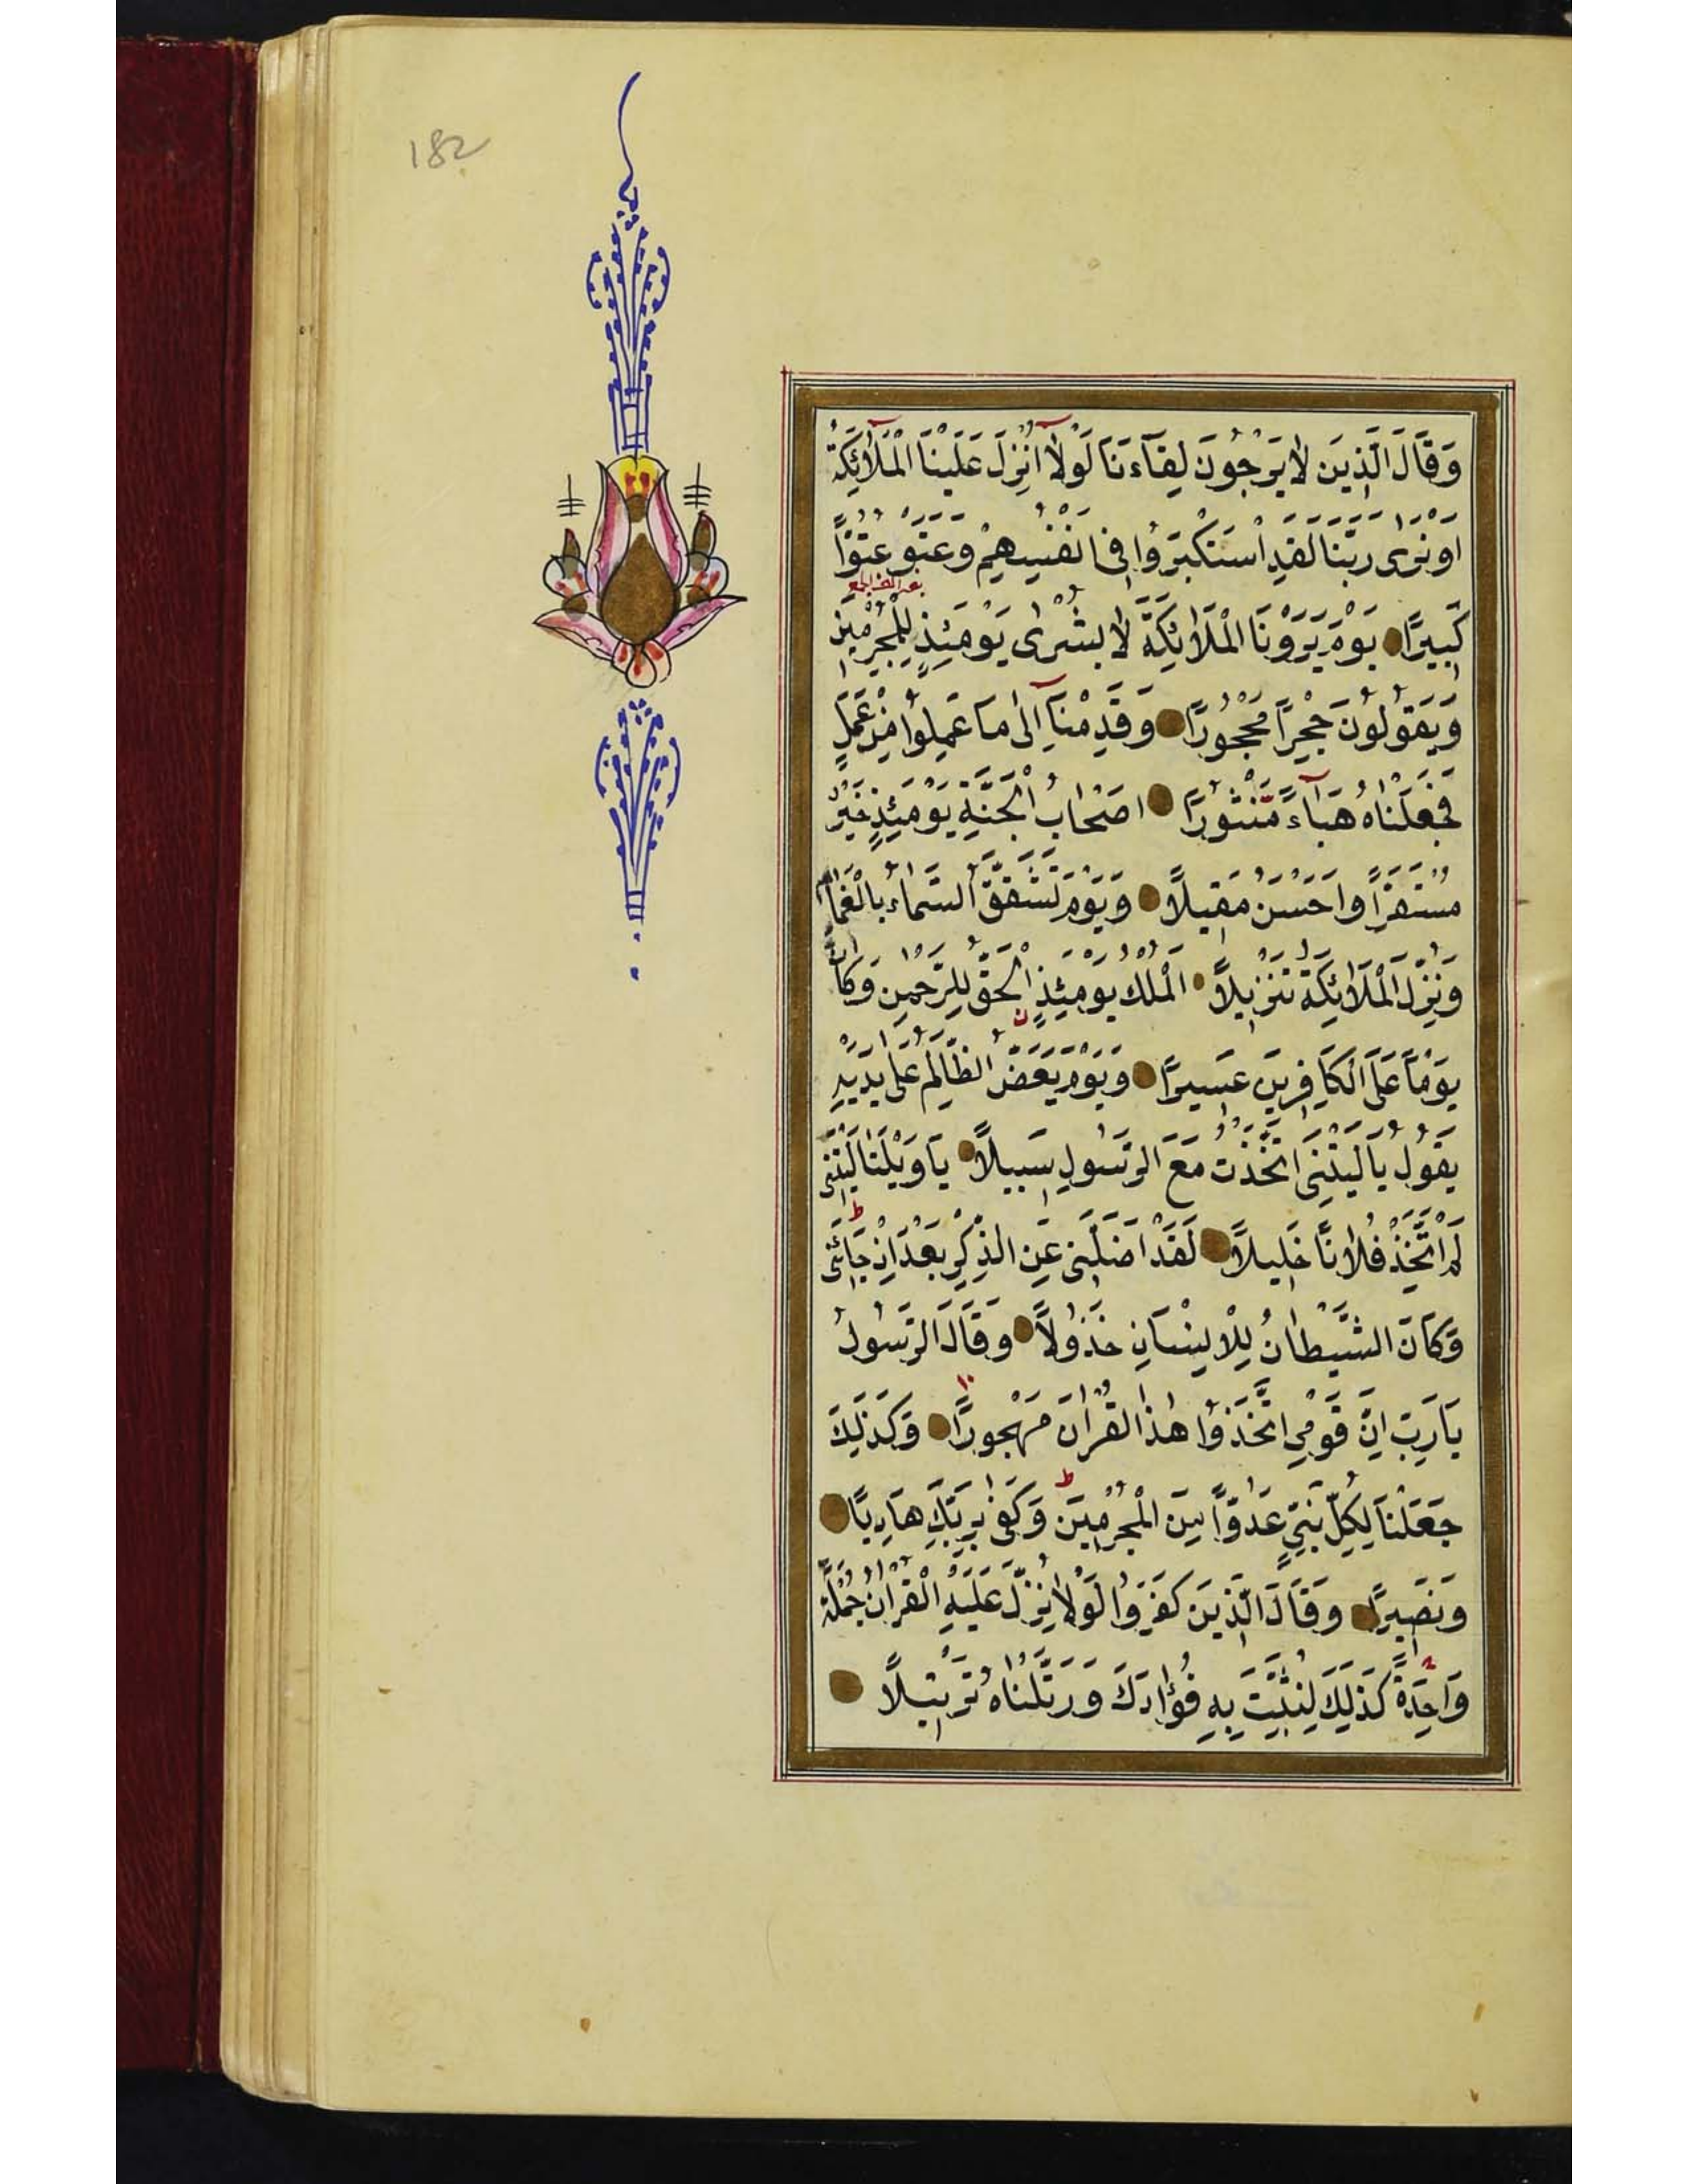 182
وَقَالَ الَّذِينَ لَا يَرْجُونَ لِقَآءَنَا لَوْلَآ اُنْزِلَ عَلَيْنَا الْمَلَآئِكَةُ
اَوْ نَرٰى رَبَّنَا لَقَدِ اسْتَكْبَرُوا فِى اَنْفُسِهِمْ وَعَتَوْ عُتُوًّا
كَبِيرًا يَوْمَ يَرَوْنَ الْمَلَائِكَةَ لَا بُشْرٰى يَوْمَئِذٍ لِلْمُجْرِمِينَ
وَيَقُولُونَ حِجْرًا مَحْجُورًا وَقَدِمْنَآ اِلٰى مَا عَمِلُوا مِنْ عَمَلٍ
فَجَعَلْنَاهُ هَبَآءً مَنْثُورًا اَصْحَابُ الْجَنَّةِ يَوْمَئِذٍ خَيْرٌ
مُسْتَقَرًّا وَاَحْسَنُ مَقِيلًا وَيَوْمَ تَشَقَّقُ السَّمَاءُ بِالْغَمَامِ
وَنُزِّلَ الْمَلَائِكَةُ تَنْزِيلًا اَلْمُلْكُ يَوْمَئِذٍ الْحَقُّ لِلرَّحْمٰنِ وَكَانَ
يَوْمًا عَلَى الْكَافِرِينَ عَسِيرًا وَيَوْمَ يَعَضُّ الظَّالِمُ عَلٰى يَدَيْهِ
يَقُولُ يَا لَيْتَنِى اتَّخَذْتُ مَعَ الرَّسُولِ سَبِيلًا يَا وَيْلَتٰا لَيْتَنِى
لَمْ اَتَّخِذْ فُلَانًا خَلِيلًا لَقَدْ اَضَلَّنِى عَنِ الذِّكْرِ بَعْدَ اِذْ جَائَنِى
وَكَانَ الشَّيْطَانُ لِلْاِنْسَانِ خَذُولًا وَقَالَ الرَّسُولُ
يَا رَبِّ اِنَّ قَوْمِى اتَّخَذُوا هٰذَا الْقُرْاٰنَ مَهْجُورًا وَكَذٰلِكَ
جَعَلْنَا لِكُلِّ نَبِىٍّ عَدُوًّا مِنَ الْمُجْرِمِينَ وَكَفٰى بِرَبِّكَ هَادِيًا
وَنَصِيرًا وَقَالَ الَّذِينَ كَفَرُوا لَوْلَا نُزِّلَ عَلَيْهِ الْقُرْاٰنُ جُمْلَةً
وَاحِدَةً كَذٰلِكَ لِنُثَبِّتَ بِهِ فُؤَادَكَ وَرَتَّلْنَاهُ تَرْتِيلًا